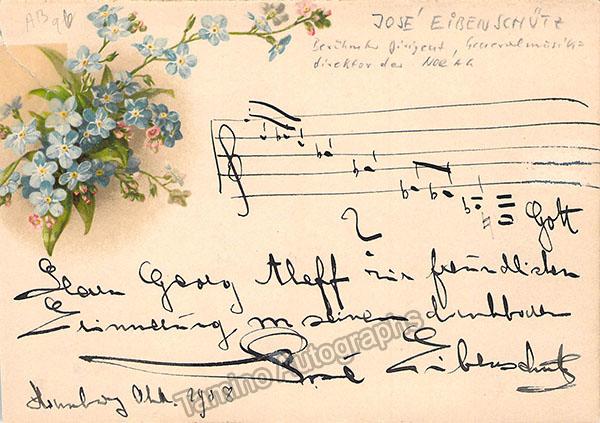 AB96
JOSÉ EIBENSCHÜTZ
berühmter Dirigent, Generalmusik=
direktor der NORAG
Gott
Herrn Georg zur freundlichen
Erinnerung an seinen dankbaren
José Eibenschütz
Hamburg Okt.
Tamino Autographs